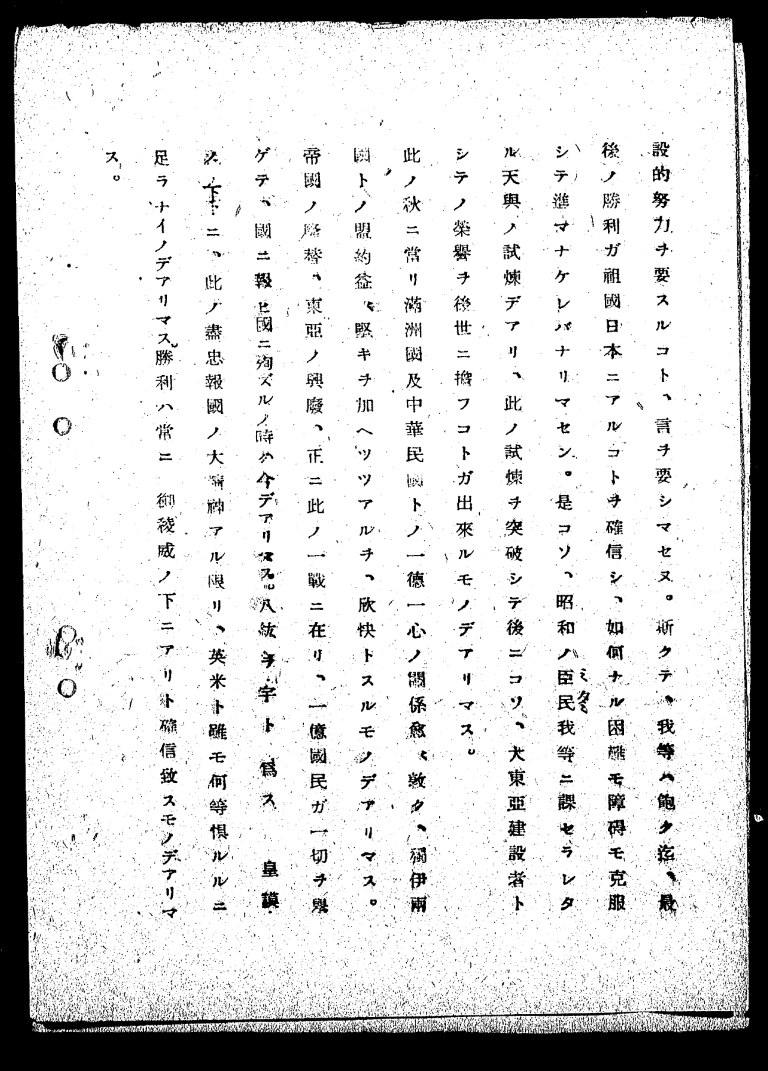 設的努力ヲ要スルコト、言ヲ要シマセヌ。斯クテ、我等ハ飽ク迄、最
後ノ勝利ガ祖國日本ニアルコトヲ確信シ、如何ナル困難モ障碍モ克服
シテ進マナケレバナリマセン。是コソ、昭和ノ臣民我等ニ課セラレタ
ミタミ
ル天與ノ試煉デアリ、此ノ試煉ヲ突破シテ後ニコソ、大東亞建設者ト
シテノ榮譽ヲ後世ニ擔フコトガ出來ルモノデアリマス。
此ノ秋ニ當リ滿洲國及中華民國トノ一德一心ノ關係愈〻敦ク、獨伊兩
國トノ盟約益〻堅キヲ加ヘツツアルヲ、欣快トスルモノデアリマス。
帝國ノ隆替、東亞ノ興廢、正ニ此ノ一戰ニ在リ、一億國民ガ一切ヲ擧
ゲテ、國ニ報ヒ國ニ殉ズルノ時ハ今デアリマス。八紘ヲ宇ト爲ス 皇謨
ノ下ニ、此ノ盡忠報國ノ大精神アル限リ、英米ト雖モ何等惧ルルニ
足ラナイノデアリマス。勝利ハ常ニ 御稜威ノ下ニアリト確信致スモノデアリマ
ス。